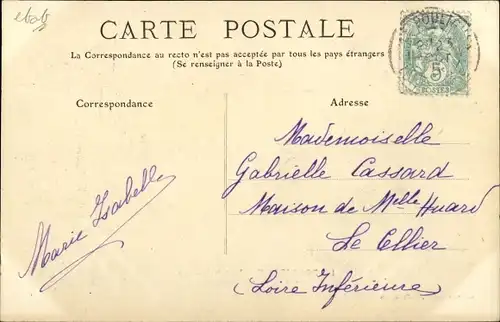 CARTE POSTALE
La Correspondance au recto n'est pas acceptée par tous les pays étrangers
(Se renseigner à la Poste)
Correspondance
Adresse
Mademoiselle
Gabrielle Cassard
Maison de Melle Huard
Le Cellier
(Loire Inférieure)
Marie Isabelle
5
POSTES